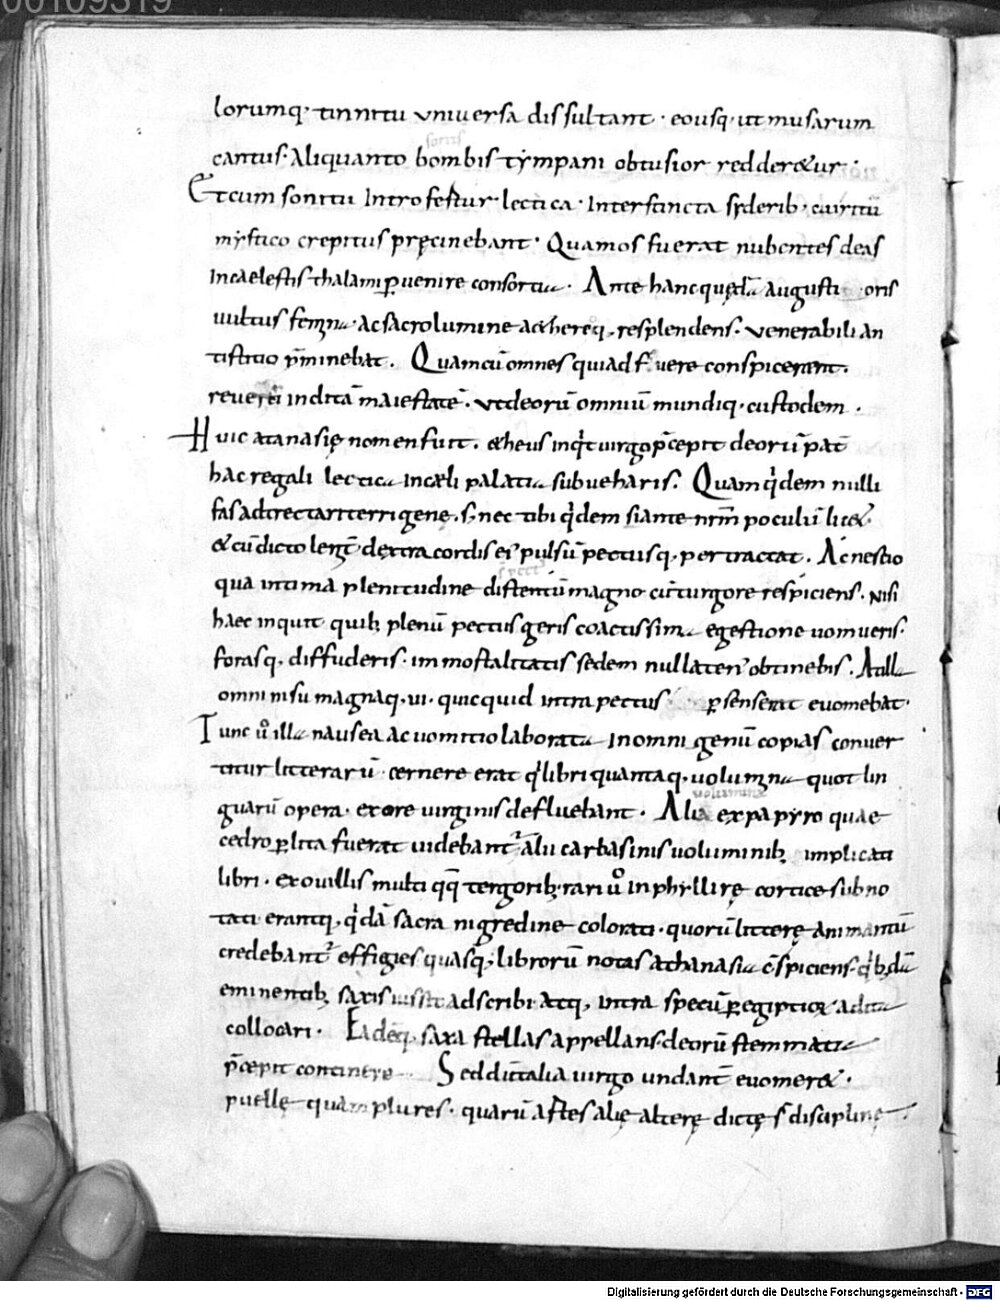 00109319
lorumq· tinnitu universa dissultant · eousq· ut musarum
sonus
cantus · Aliquanto bombis tympani obtusior redderetur·
Et cum sonitu Intro fertur lectica · Interstincta siderib· cui ritu
mystico crepitus pręcinebant · Quamos fuerat nubentes deas
In caelestis thalami ꝑuenire consortia · Ante hanc quędā augusti oris
uultus femina · ac sacro lumine aethereq· resplendens · venerabili an
tistitio p̄minebat . Quam cū omnes qui adfuere conspicerent .
reueriti indita maiestate · ut deorū omniū mundiq· custodem .
Huic atanasię nomen fuit . & heus inqͥt uirgo p̄cepit deorū pat̄
hac regali lectica In caeli palatia subueharis · Quam qͥdem nulli
fas adtrectari terrigenę · s; nec tibi qͥdem si ante nrm̄ poculū lic&
& cū dicto leniť dextra cordis ei᾿ pulsū pectusq· pertractat . Ac nescio
qua intima plenitudine distentū magno cū turgore respiciens . Nisi
haec inquit quib; plenū pectus geris coactissima egestione uomueris·
forasq· diffuderis · immortalitatis sedem nullaten᾿ obtinebis . At illa
omni nisu magnaq· ui · quicquid intra pectus ꝑsenserat euomebat·
Tunc uͦ illa nausea ac uomitio laborata In omnigenū copias conuer
titur litterarū · cernere erat qͥ libri quantaq· uolumina quot lin
guarū opera · ex ore uirginis defluebant ·
uolumina
Alia ex papyro quae
cedro ꝑlita fuerat uidebant᾿ alii carbasinis uoluminib; implicati
libri · ex ouillis multi qq̄ tergorib; rari uͦ In phyllirę cortice subno
tati erantq· qͥdā sacra nigredine colorati · quorū litterę animantū
credebant᾿ effigies quasq; librorū notas athanasia c̄spiciens qͥb;dā
eminentib; saxis iussit adscribi atq· intra specū ꝑ egiptior̄ adita
collocari · Eadēq· saxa stellas appellans deorū stemmata
p̄cepit continere Sed dū talia uirgo undant᾿ euomer& ·
puellę quam plures · quarū artes alię alterę dictę s᾿ disciplinę
Digitalisierung gefördert durch die Deutsche Forschungsgemeinschaft · DFG